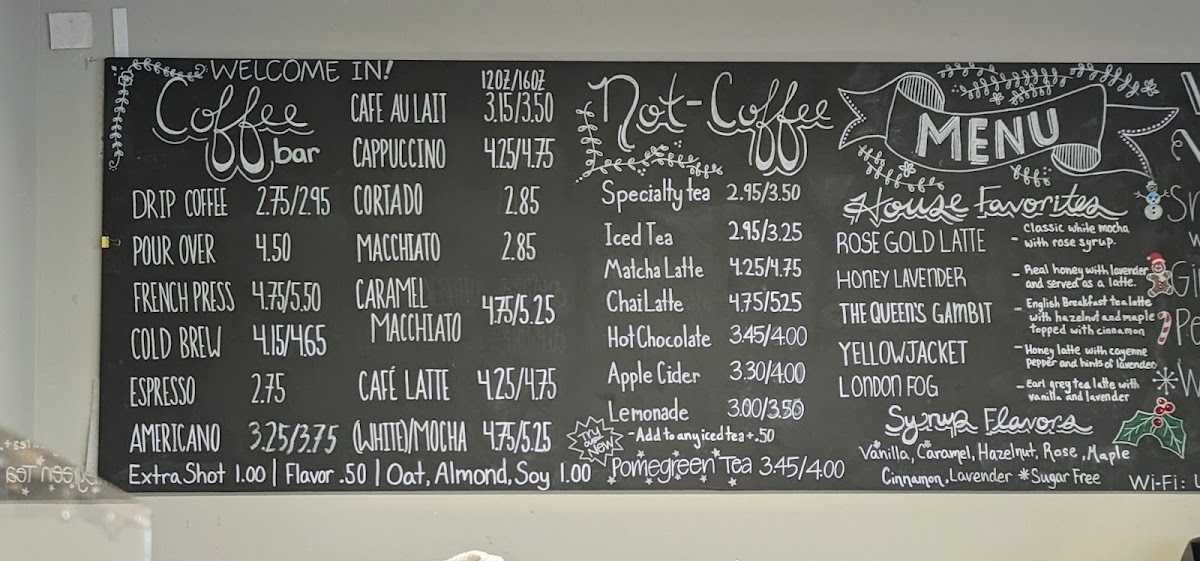 WELCOME IN!
Coffee
bar
DRIP COFFEE 2.75/2.95
POUR OVER 4.50
FRENCH PRESS 4.75/5.50
COLD BREW 4.15/4.65
ESPRESSO 2.75
AMERICANO 3.25/3.75
12OZ/16OZ
CAFE AU LAIT 3.15/3.50
CAPPUCCINO 4.25/4.75
CORTADO 2.85
MACCHIATO 2.85
CARAMEL
MACCHIATO 4.75/5.25
CAFÉ LATTE 4.25/4.75
(WHITE)/MOCHA 4.75/5.25
Extra Shot 1.00 | Flavor .50 | Oat, Almond, Soy 1.00
Not-Coffee
Specialty tea 2.95/3.50
Iced Tea 2.95/3.25
Matcha Latte 4.25/4.75
Chai Latte 4.75/5.25
Hot Chocolate 3.45/4.00
Apple Cider 3.30/4.00
Lemonade 3.00/3.50
- Add to any iced tea +.50
Try our NEW
Pomegreen Tea 3.45/4.00
MENU
House Favorites
ROSE GOLD LATTE - Classic white mocha
with rose syrup.
HONEY LAVENDER - Real honey with lavender
and served as a latte.
THE QUEEN'S GAMBIT - English Breakfast tea latte
with hazelnut and maple
topped with cinnamon
YELLOWJACKET - Honey latte with cayenne
pepper and hints of lavender
LONDON FOG - Earl grey tea latte with
vanilla and lavender
Syrup Flavors
*Vanilla, *Caramel, Hazelnut, Rose, Maple
Cinnamon, Lavender *Sugar Free
Wi-Fi: